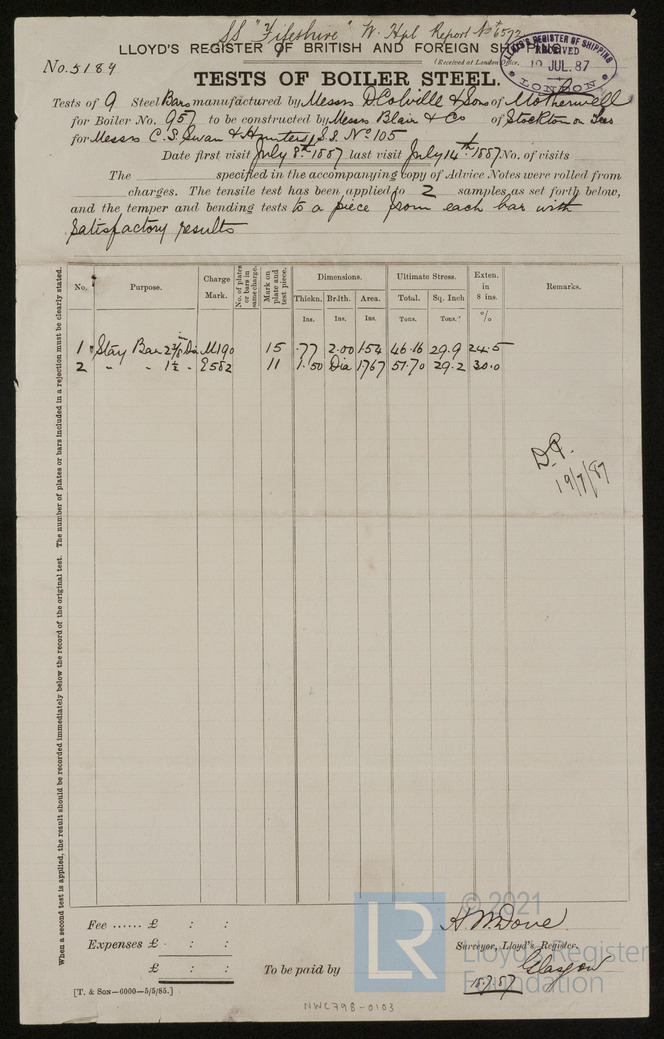 SS "Fifeshire" W. Hpl Report No 6572
LLOYD'S REGISTER OF BRITISH AND FOREIGN SHIPPING.
No. 5189
(Received at London Office,
LLOYD'S REGISTER OF SHIPPING
RECEIVED
19 JUL. 87
LONDON
TESTS OF BOILER STEEL.
Tests of 9 Steel Bars manufactured by Messrs D Colville & Sons of Motherwell
for Boiler No. 957 to be constructed by Messrs Blair & Co of Stockton on Tees
for Messrs C. S. Swan & Hunters, S.S. No 105
Date first visit July 8th 1887 last visit July 14th 1887 No. of visits
The specified in the accompanying copy of Advice Notes were rolled from
charges. The tensile test has been applied to 2 samples as set forth below,
and the temper and bending tests to a piece from each bar with
satisfactory results
No. Purpose. Charge Mark. No. of plates or bars in same charge. Mark on plate and test piece. Dimensions. Ultimate Stress. Exten. in 8 ins. Remarks.
Thickn. Br.lth. Area. Total. Sq. Inch
Ins. Ins. Ins. Tons. Tons. %
1 Stay Bar 2 3/8 Dia M190 15 .77 2.00 1.54 46.16 29.9 24.5
2 " " 1½ " E582 11 1.50 Dia 1767 51.70 29.2 30.0
D.P.
19/7/87
When a second test is applied, the result should be recorded immediately below the record of the original test. The number of plates or bars included in a rejection must be clearly stated.
Fee ...... £ : :
Expenses £ : :
£ : :
To be paid by
H. W. Dove
Surveyor, Lloyd's Register.
Glasgow
15.7.87
[T. & SON—6000—5/5/85.]
NWC798-0103
LR
© 2021
Lloyd's Register
Foundation